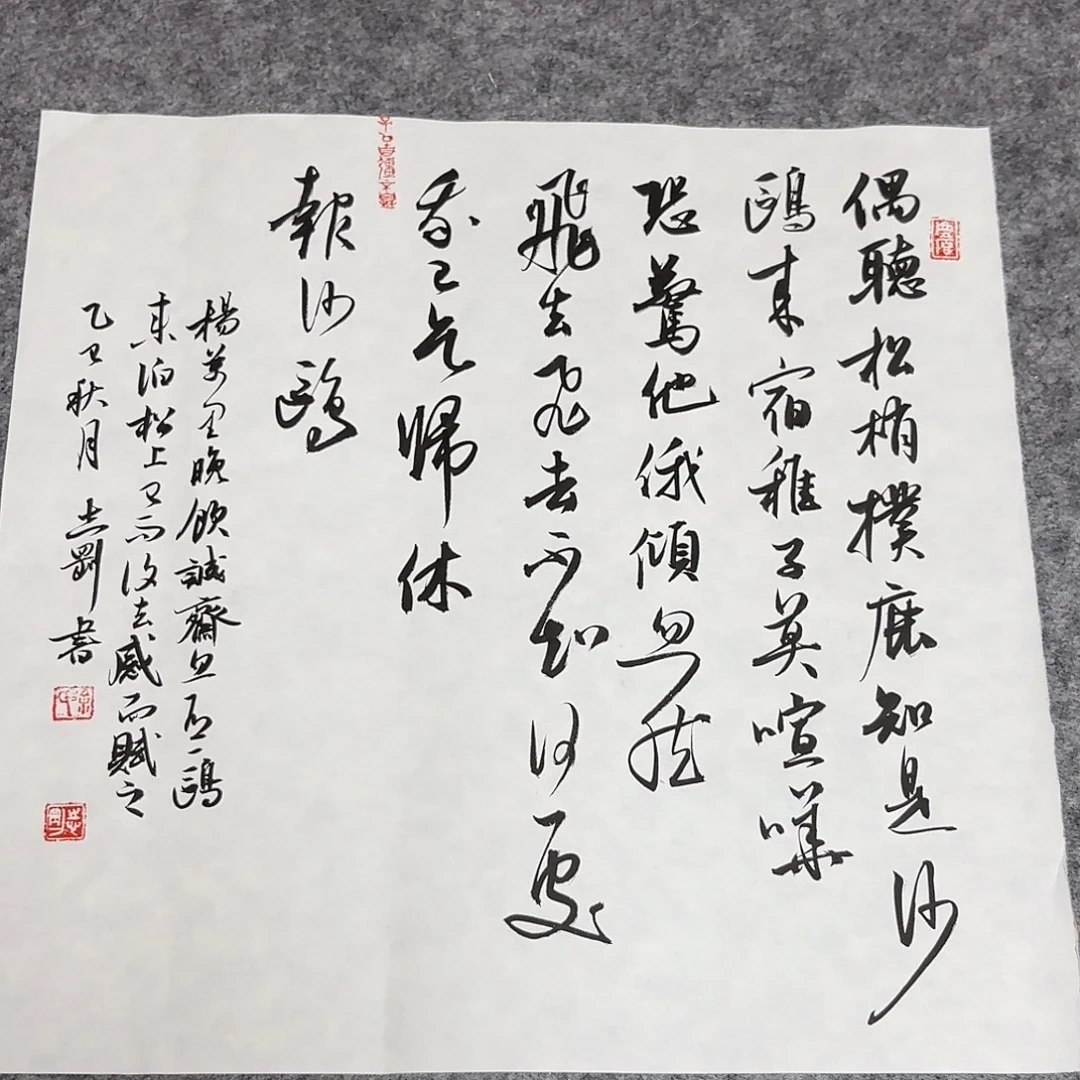 偶聽松梢撲鹿知是沙
鷗来宿稚子莫喧嘩
恐驚他俄傾忽然
飛去飛去不知何處
我已乞帰休
報沙鷗
楊萬里晚飲誠齋忽有一鷗
来泊松上已而復去感而賦之
乙巳秋月志剛書